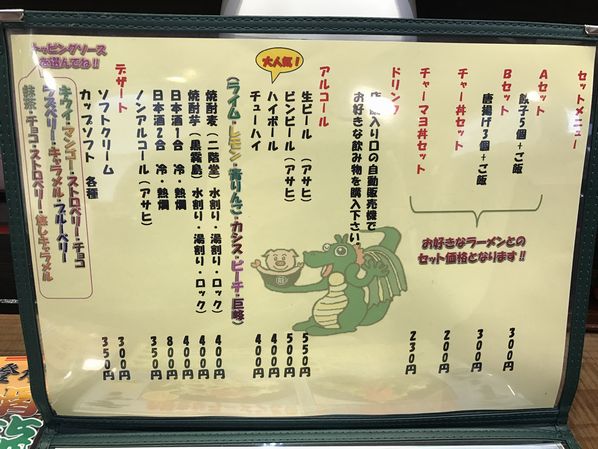 セットメニュー
Aセット
餃子5個+ご飯 300円
Bセット
唐揚げ3個+ご飯 300円
チャー丼セット 200円
チャーマヨ丼セット 230円
お好きなラーメンとの
セット価格となります!!
ドリンク
店舗入り口の自動販売機で
お好きな飲み物を購入下さい。
アルコール
生ビール (アサヒ) 550円
ビンビール (アサヒ) 500円
大人気!
ハイボール 400円
チューハイ 400円
(ライム・レモン・青りんご・カシス・ピーチ・巨峰)
焼酎麦 (二階堂) 水割り・湯割り・ロック) 400円
焼酎芋 (黒霧島) 水割り・湯割り・ロック) 400円
日本酒1合 冷・熱燗 400円
日本酒2合 冷・熱燗 800円
ノンアルコール (アサヒ) 350円
デザート
ソフトクリーム 300円
カップソフト 各種 350円
トッピングソース
を選んでね!!
キウイ・マンゴー・ストロベリー・チョコ
ラズベリー・キャラメル・ブルーベリー
抹茶・チョコ・ストロベリー・焦しキャラメル